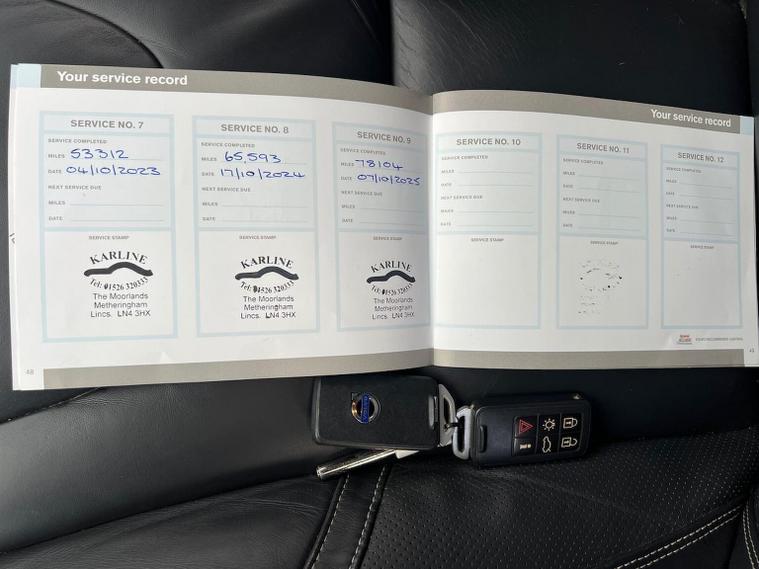 Your service record
SERVICE NO. 7
SERVICE COMPLETED
MILES 53312
DATE 04/10/2023
NEXT SERVICE DUE
MILES
DATE
SERVICE STAMP
KARLINE
Tel: 01526 320333
The Moorlands
Metheringham
Lincs. LN4 3HX
SERVICE NO. 8
SERVICE COMPLETED
MILES 65,593
DATE 17/10/2024
NEXT SERVICE DUE
MILES
DATE
SERVICE STAMP
KARLINE
Tel: 01526 320333
The Moorlands
Metheringham
Lincs. LN4 3HX
SERVICE NO. 9
SERVICE COMPLETED
MILES 78104
DATE 07/10/2025
NEXT SERVICE DUE
MILES
DATE
SERVICE STAMP
KARLINE
Tel: 01526 320333
The Moorlands
Metheringham
Lincs. LN4 3HX
48
Your service record
SERVICE NO. 10
SERVICE COMPLETED
MILES
DATE
NEXT SERVICE DUE
MILES
DATE
SERVICE STAMP
SERVICE NO. 11
SERVICE COMPLETED
MILES
DATE
NEXT SERVICE DUE
MILES
DATE
SERVICE STAMP
SERVICE NO. 12
SERVICE COMPLETED
MILES
DATE
NEXT SERVICE DUE
MILES
DATE
SERVICE STAMP